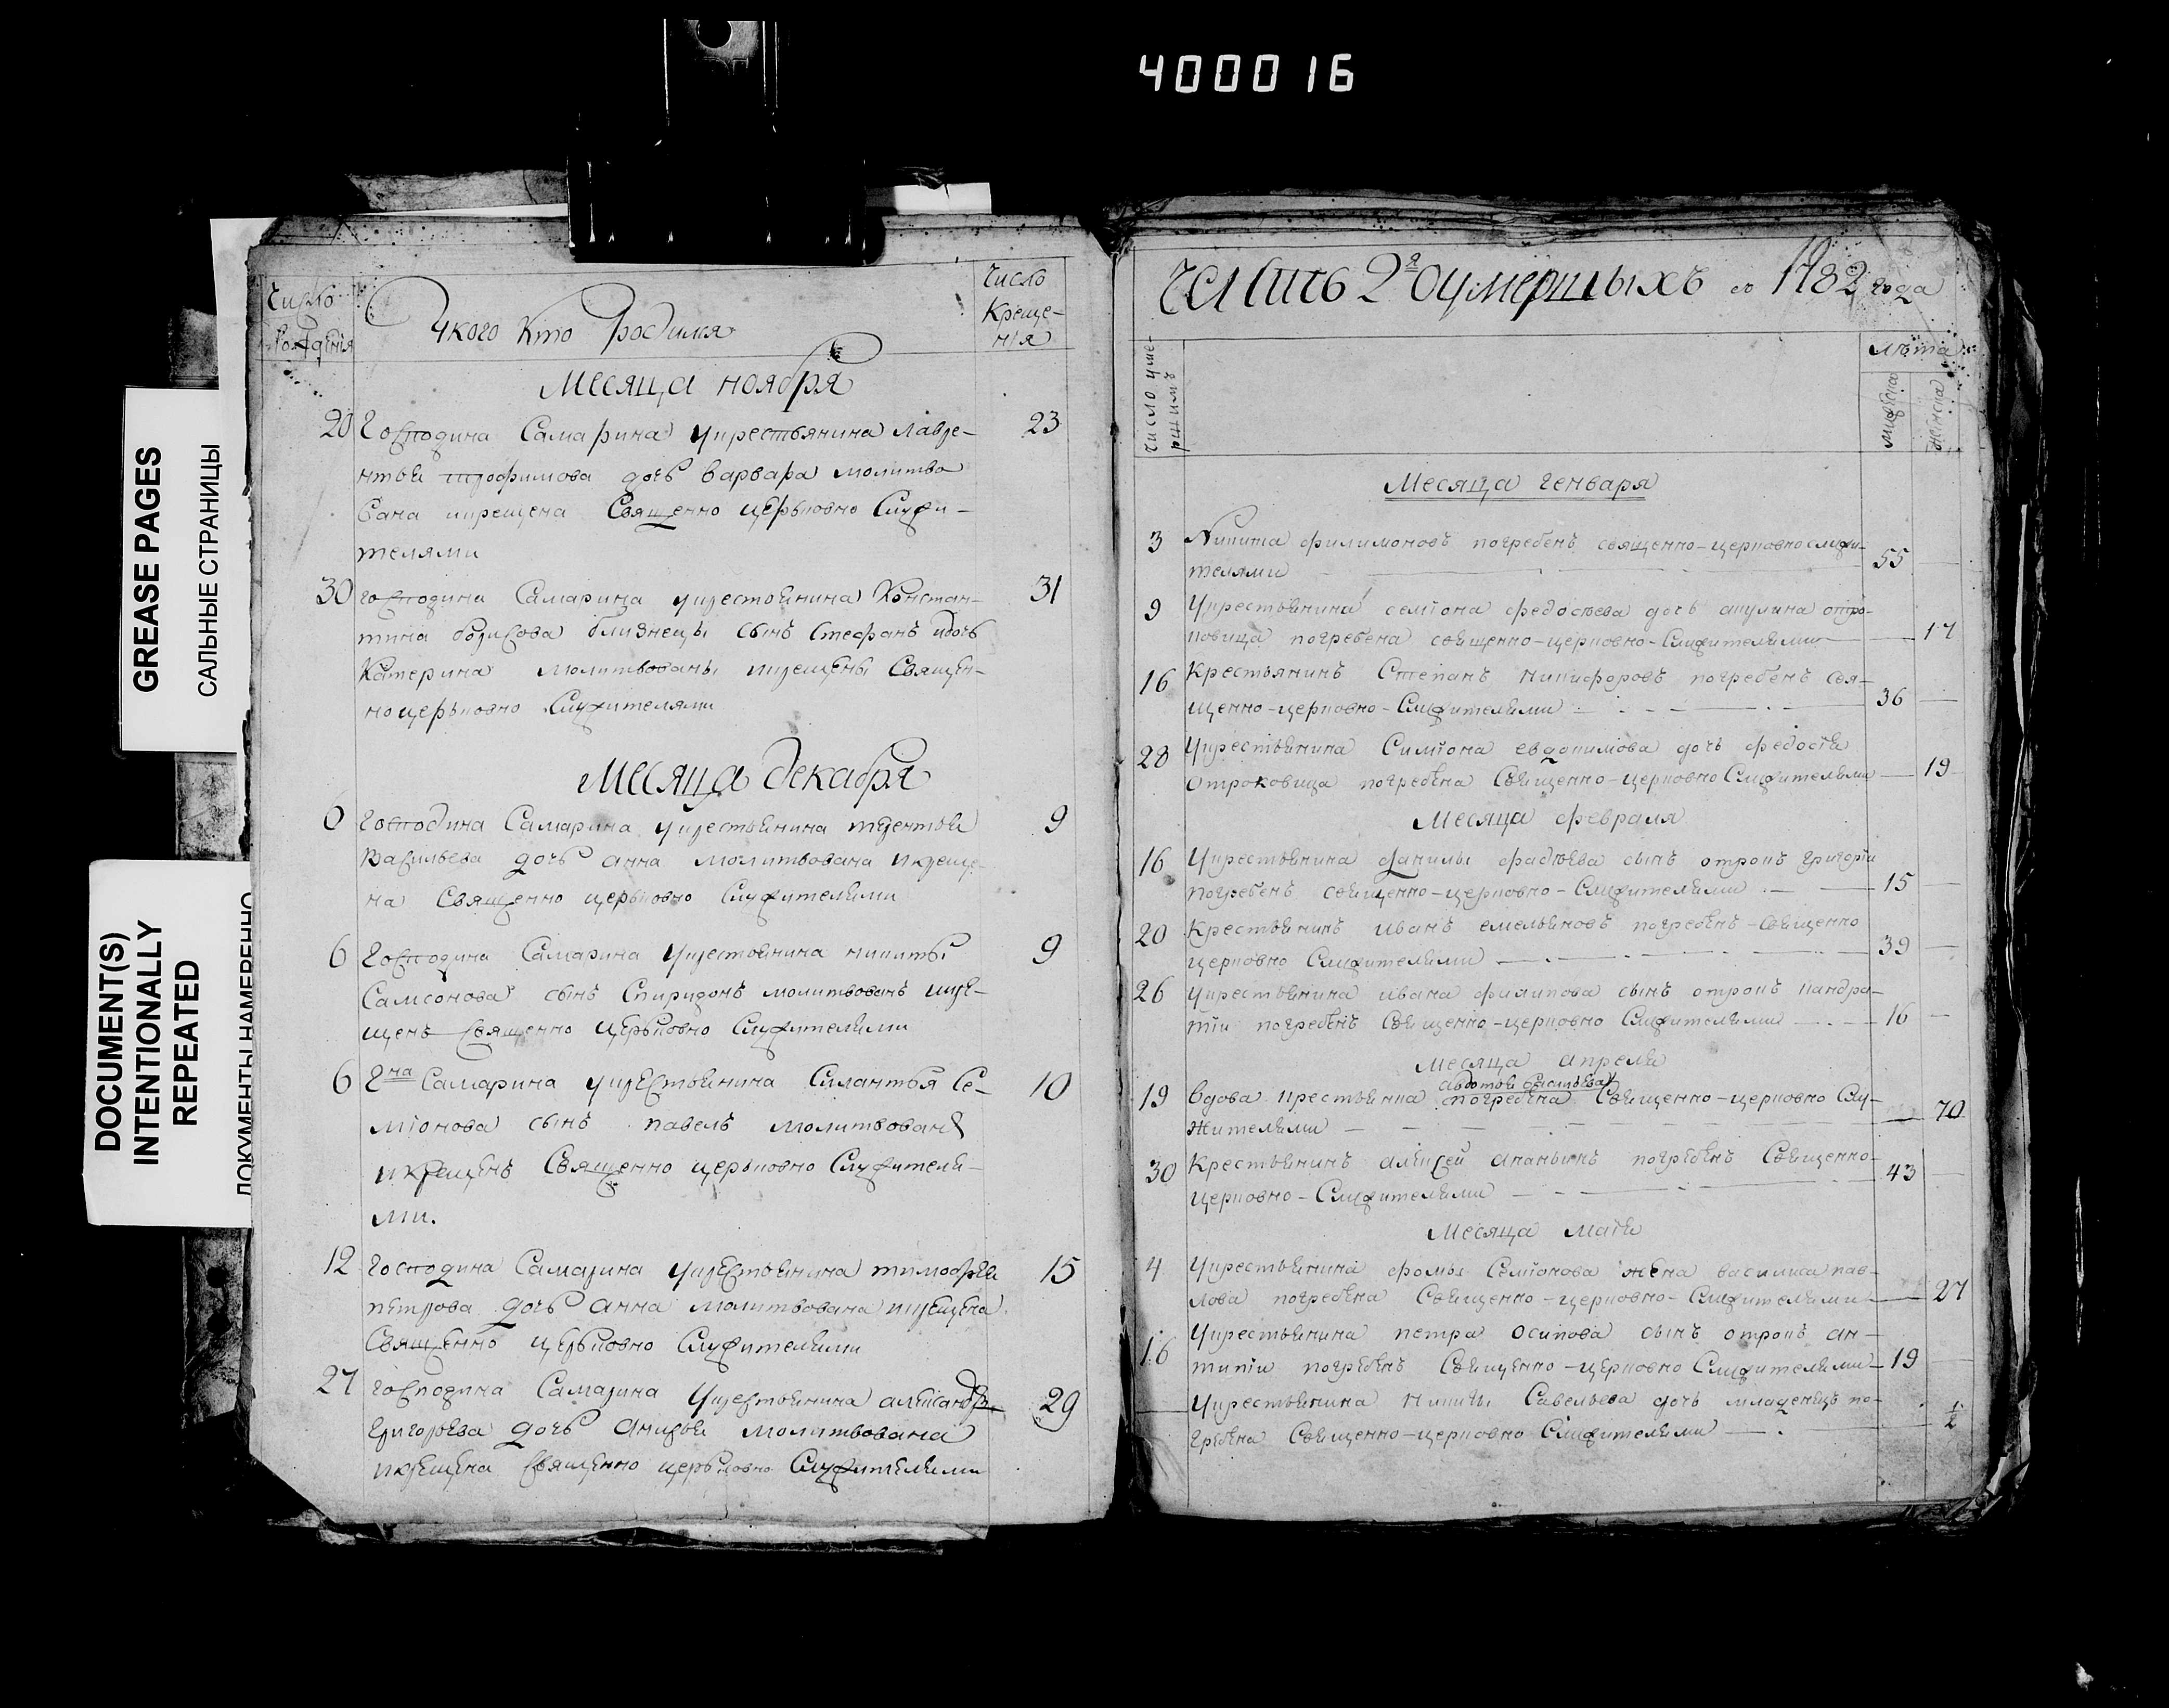 400016
GREASE PAGES
САЛЬНЫЕ СТРАНИЦЫ
DOCUMENT(S)
INTENTIONALLY
REPEATED
ДОКУМЕНТЫ НАМЕРЕННО
Число
рождения
Укого Кто Родился
Число
Креще-
нiя
Месяца ноября
20 Господина Самарина укрестьянина Лавре-
нтьи трофимова дочь варвара молитво
вана икрещена Священно церьковно Служи-
телями 23
30 господина Самарина укрестьянина Констан-
тина борисова близнецы сынъ Стефанъ идочь
Катерина молитвованы икрещены Священ-
ноцерьковно Служителями 31
Месяца декабря
6 Господина Самарина укрестьянина терентья
Васильева дочь анна молитвована икреще-
на Священно церьковно Служителями 9
6 Господина Самарина укрестьянина никиты
Самсонова сынъ Спиридонъ молитвованъ икре-
щенъ Священно церьковно Служителями 9
6 Гна Самарина укрестьянина Силантья Се-
мiонова сынъ павелъ молитвованъ
икрещенъ Священно церьковно Служителя-
ми. 10
12 господина Самарина укрестьянина тимофея
петрова дочь анна молитвована икрещена
Священно церьковно Служителями 15
27 господина Самарина укрестьянина александра
григорьева дочь Анисья молитвована
икрещена Священно церьковно Служителями 29
Часть 2я Оумершыхъ 1782 года
Число уме-
ршимъ
лѣта
мужеска
женска
Месяца генваря
3 Никита филимоновъ погребенъ священно-церковнослужи-
телями 55
9 Укрестьянина семiона федосеева дочь акулина отро-
ковица погребена священно-церковно-Служителями 17
16 Крестьянинъ Степанъ никифоровъ погребенъ свя-
щенно-церковно-Служителями 36
28 Укрестьянина Симiона евдокимова дочь федосiя
Отроковица погребена Священно-церковно Служителями 19
Месяца февраля
16 Укрестьянина данилы фадеева сынъ отрокъ григорiи
погребенъ священно-церковно-Служителями 15
20 Крестьянинъ иванъ емельяновъ погребенъ-священно
церковно Служителями 39
26 Укрестьянина ивана филипова сынъ отрокъ кандра-
тiи погребенъ Священно-церковно Служителями 16
Месяца апреля
авдотья васильева
19 Вдова крестьянка погребена Священно-церковно Слу-
жителями 70
30 Крестьянинъ алексей ананьинъ погребенъ Священно-
церковно-Служителями 43
Месяца маiя
4 Укрестьянина фомы Семiонова жена василиса пав-
лова погребена Священно-церковно-Служителями 27
16 Укрестьянина петра осипова сынъ отрокъ ан-
типiи погребенъ Священно-церковно Служителями 19
Укрестьянина никиты Савельева дочь младенецъ по-
гребена Священно-церковно Служителями 1/2